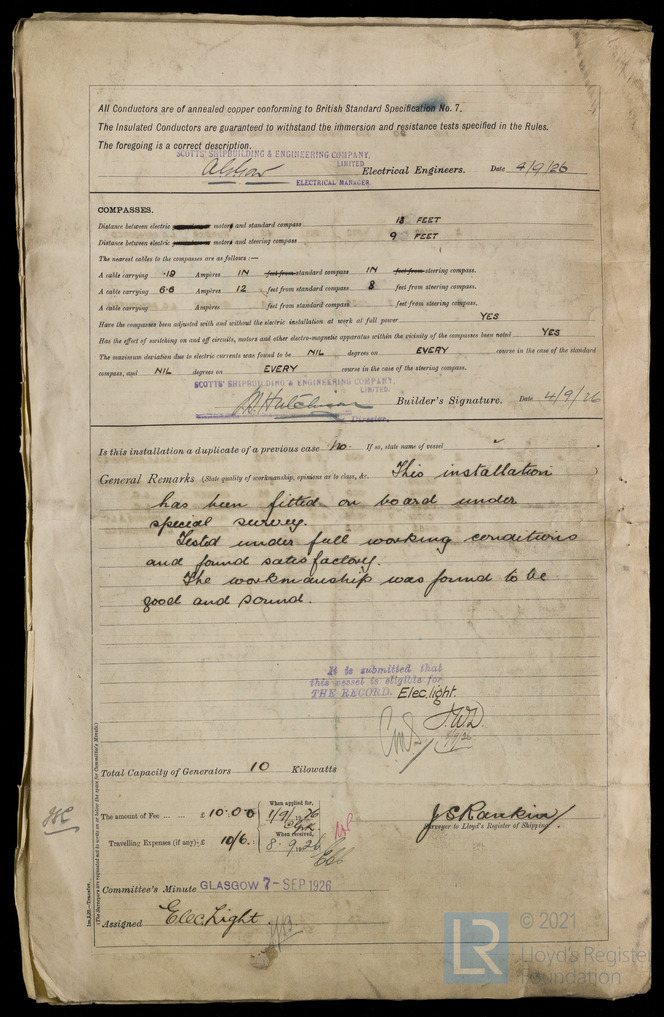 All Conductors are of annealed copper conforming to British Standard Specification No. 7.
The Insulated Conductors are guaranteed to withstand the immersion and resistance tests specified in the Rules.
The foregoing is a correct description.
SCOTTS' SHIPBUILDING & ENGINEERING COMPANY,
LIMITED
Electrical Engineers. Date 4/9/26
ELECTRICAL MANAGER
COMPASSES.
Distance between electric motors and standard compass 13 FEET
Distance between electric motors and steering compass 9 FEET
The nearest cables to the compasses are as follows :—
A cable carrying .19 Ampères IN feet from standard compass IN feet from steering compass.
A cable carrying 6.6 Ampères 12 feet from standard compass 8 feet from steering compass.
A cable carrying Ampères feet from standard compass feet from steering compass.
Have the compasses been adjusted with and without the electric installation at work at full power YES
Has the effect of switching on and off circuits, motors and other electro-magnetic apparatus within the vicinity of the compasses been noted YES
The maximum deviation due to electric currents was found to be NIL degrees on EVERY course in the case of the standard
compass, and NIL degrees on EVERY course in the case of the steering compass.
SCOTTS' SHIPBUILDING & ENGINEERING COMPANY,
LIMITED.
Hutchison Builder's Signature. Date 4/9/26
Director.
Is this installation a duplicate of a previous case No. If so, state name of vessel
General Remarks (State quality of workmanship, opinions as to class, &c. This installation
has been fitted on board under
special survey.
Tested under full working conditions
and found satisfactory.
The workmanship was found to be
good and sound.
It is submitted that
this vessel is eligible for
THE RECORD. Elec. light.
J.W.D.
Total Capacity of Generators 10 Kilowatts
The amount of Fee ... ... £ 10.0.0 When applied for,
Travelling Expenses (if any) £ 10/6. When received,
8.9.26
J S Rankin
Surveyor to Lloyd's Register of Shipping.
Committee's Minute GLASGOW 7-SEP.1926
Assigned Elec. Light
(The Surveyors are requested not to write on or below the space for Committee's Minute.)
LR © 2021
Lloyd's Register
Foundation